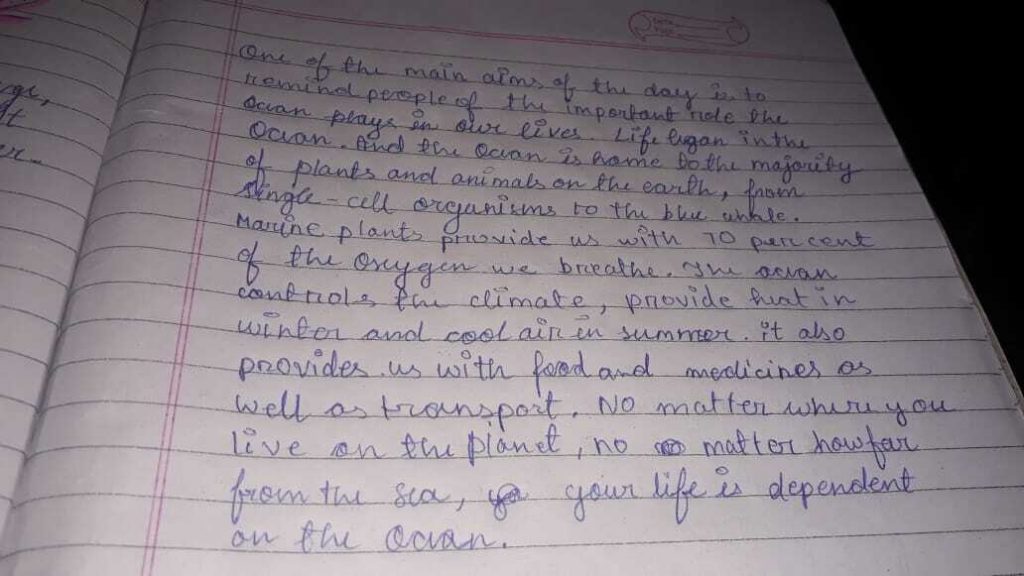 One of the main aims of the day is to
remind people of the important role the
Ocean plays in our lives Life began in the
Ocean. And the Ocean is home to the majority
of plants and animals on the earth, from
single-cell organisms to the blue whale.
Marine plants provide us with 70 per cent
of the oxygen we breathe. The ocean
controls the climate, provide heat in
winter and cool air in summer. it also
provides us with food and medicines as
well as transport. No matter where you
live on the planet, no matter how far
from the sea, your life is dependent
on the Ocean.